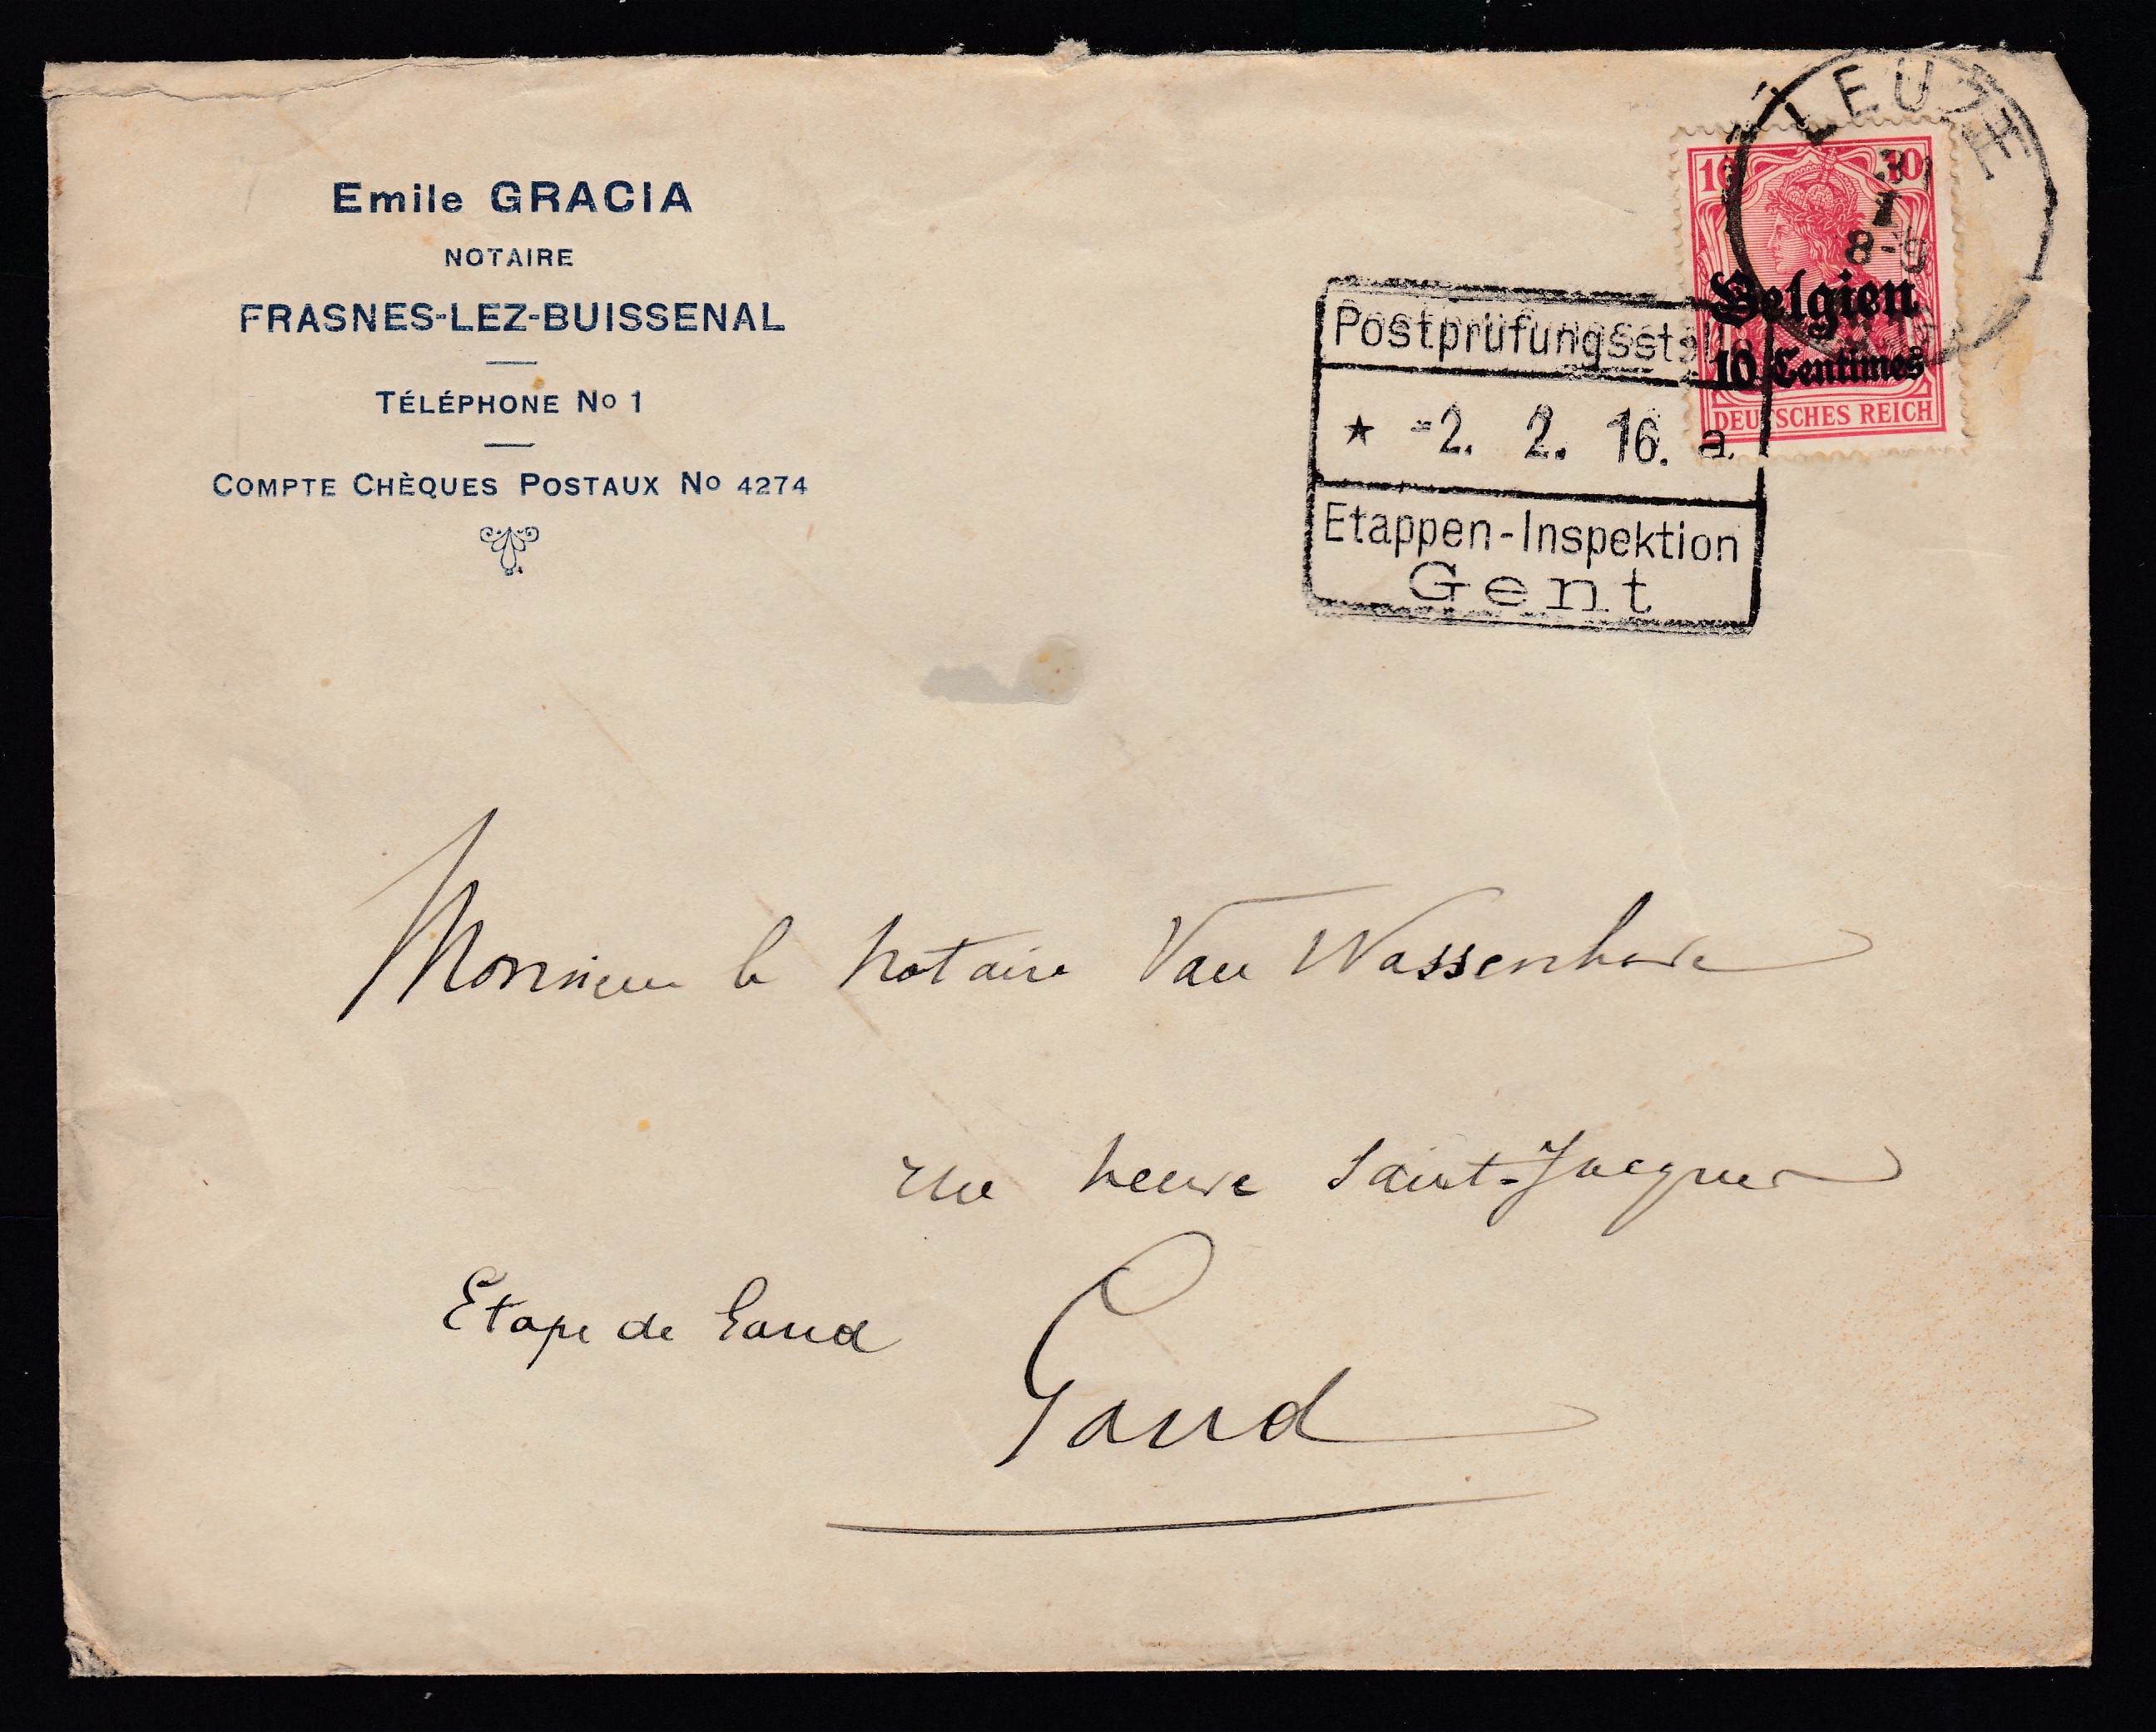 Emile GRACIA
NOTAIRE
FRASNES-LEZ-BUISSENAL
TÉLÉPHONE No 1
COMPTE CHÈQUES POSTAUX No 4274
LEUZE
31
1
8-9
10 10
Belgien
10 Centimes
DEUTSCHES REICH
Postprüfungsstelle
★ -2. 2. 16. a.
Etappen-Inspektion
Gent
Monsieur le Notaire Van Wassenhove
rue neuve Saint-Jacques
Etape de Gand
Gand